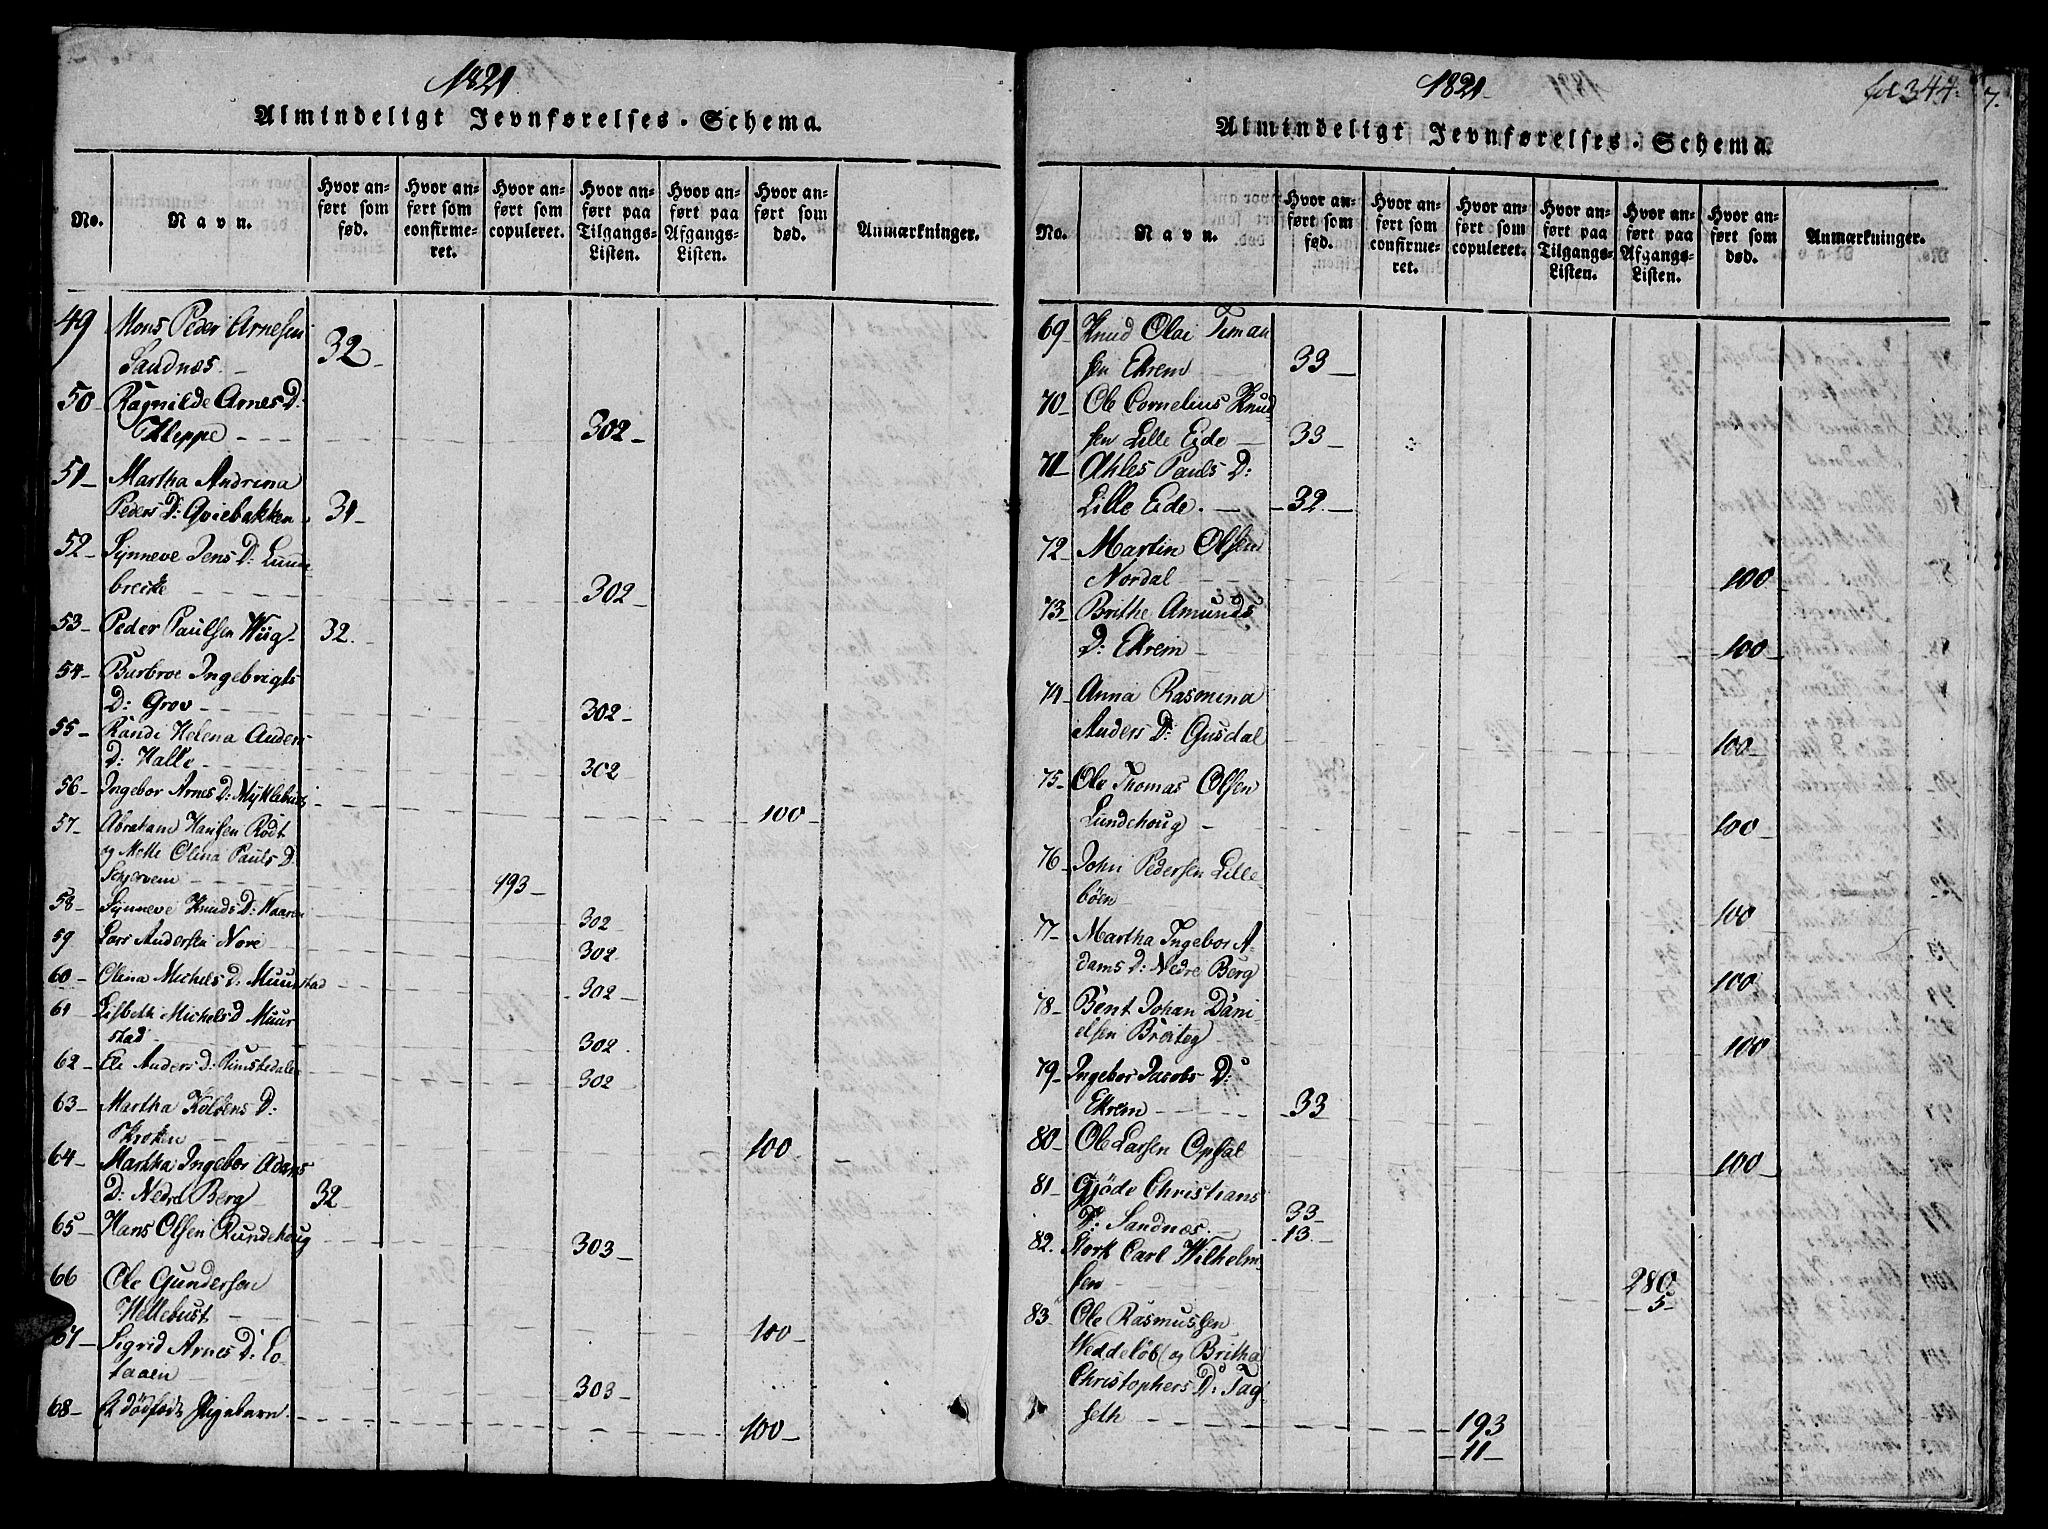 1821.
Almindeligt Jevnførelses-Schema.
No.
Navn.
Hvor an-
ført som
fød.
Hvor an-
ført som
confirme-
ret.
Hvor an-
ført som
copuleret.
Hvor an-
ført paa
Tilgangs-
Listen.
Hvor an-
ført paa
Afgangs-
Listen.
Hvor an-
ført som
død.
Anmærkninger.
49 Mons Peder Arnesen
Sandnæs. 32
50 Ragnilde Arnes D:
Kleppe 302
51 Martha Andrina
Peders D: Qviebakken 31
52 Synneve Jens D: Lunde
breike 302
53 Peder Paulsen Wiig 32.
54 Burbroe Ingebrigts
D: Grov 302
55 Randi Helena Anders
D: Halle 302
56 Ingebor Arnes D: Myklebust 100
57 Abraham Hansen Rodt
og Mette Olina Pauls D.
Schjervem 193
58 Synneve Knuds D: Haaren 302
59 Lars Andersen Nore 302
60 Olina Michels D. Muurstad 302
61 Lisbeth Michels D Muur
stad 302
62 Eli Anders D: Rimstedalen 302
63 Martha Kolbens D:
Kroken 100
64 Martha Ingebor Adams
D: Nedre Berg 32
65 Hans Olsen Rundehoug 303
66 Ole Gunderson
Hellebust 100
67 Sigrid Arnes D: Lo-
taaen 303
68 Et dødfødt Pigebarn 100
1821.
fol 344.
7.
Almindeligt Jevnførelses-Schema.
No.
Navn.
Hvor an-
ført som
fød.
Hvor an-
ført som
confirme-
ret.
Hvor an-
ført som
copuleret.
Hvor an-
ført paa
Tilgangs-
Listen.
Hvor an-
ført paa
Afgangs-
Listen.
Hvor an-
ført som
død.
Anmærkninger.
69 Knud Olai Timan
sen Ekrem 33
70 Ole Cornelius Knud
sen Lille Eide 33
71 Ahles Pauls D:
Lille Eide. 32.
72 Martin Olsen
Nordal 100
73 Brithe Amunds
D: Ekrem 100
74 Anna Rasmina
Anders D: Gusdal 100
75 Ole Thomas Olsen
Lundehoug 100
76 John Pedersen Lille-
bøen 100
77 Martha Ingebor A-
dams D: Nedre Berg 100
78 Bent Johan Dani-
elsen Brøiteg 100
79 Ingebor Jacobs D:
Ekrem 33
80 Ole Larsen Opsal 100
81 Gjøde Christians
D: Sandnæs. 33
13.
82. Stork Carl Wilhelm-
sen 280
5
83 Ole Rasmussen
Weddeløb og Britha
Christophers D: Tag
seth 193
11